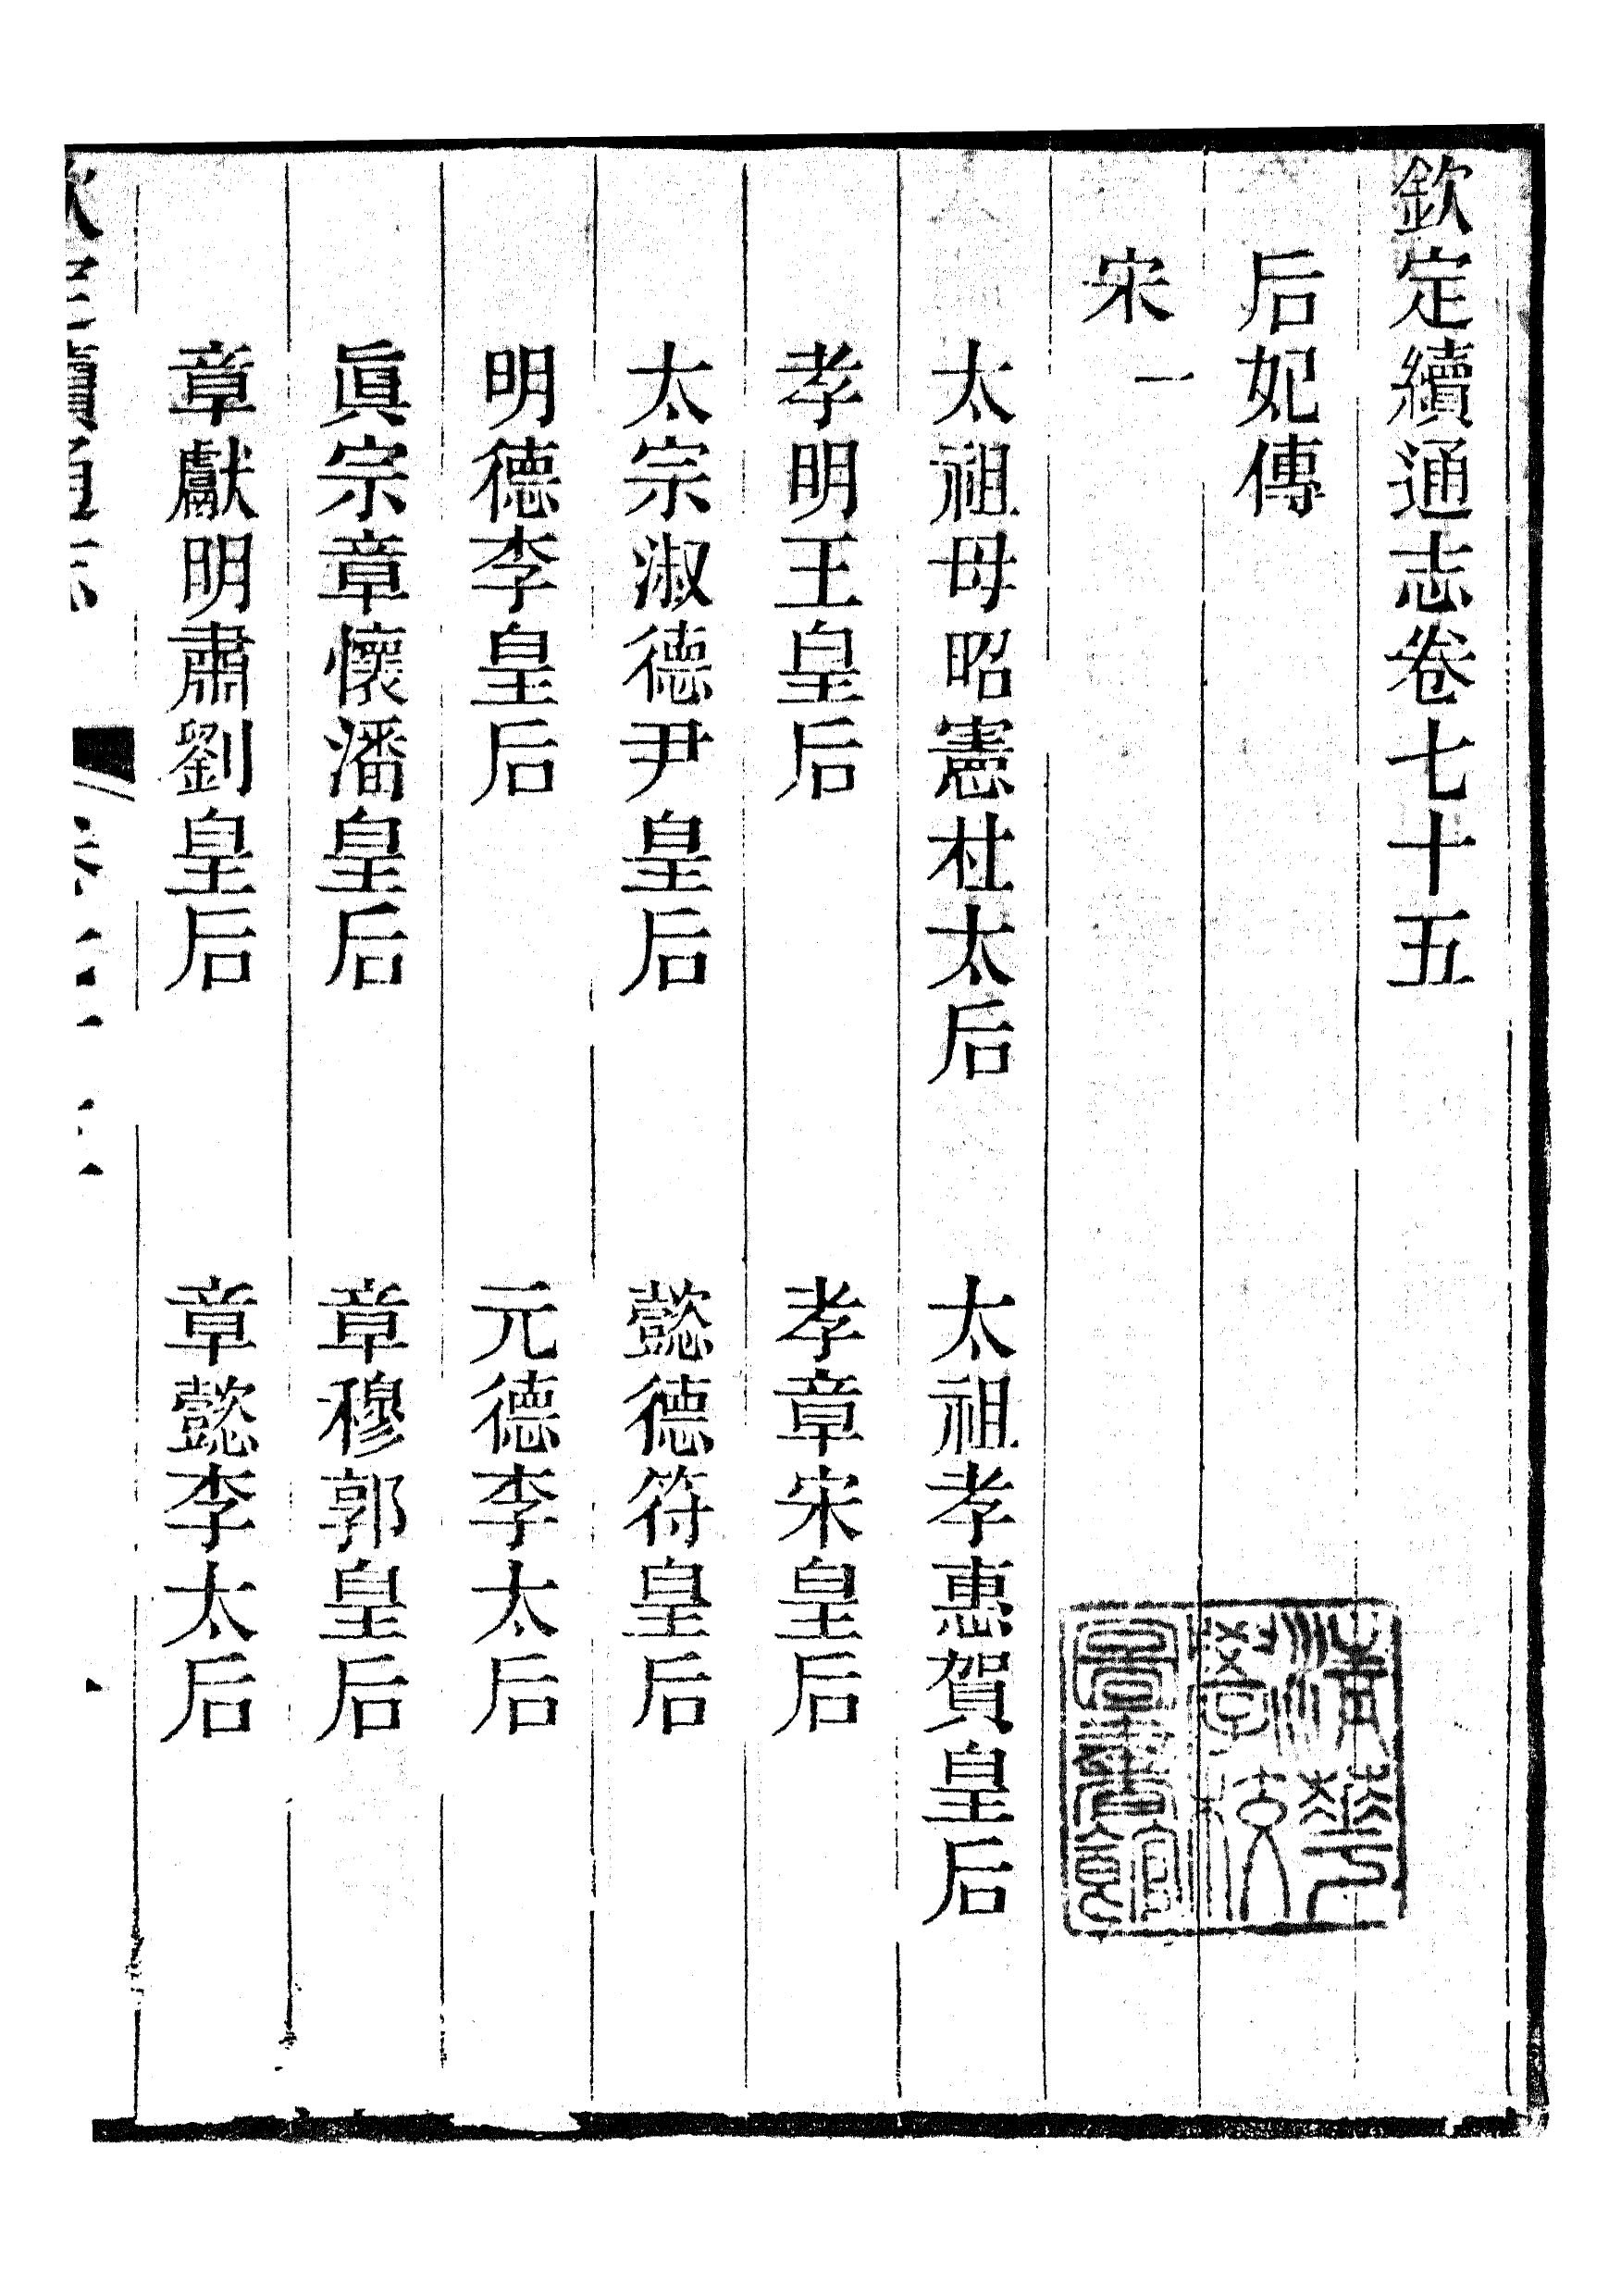 欽定續通志卷七十五
后妃傳
宋一
太祖母昭憲杜太后　太祖孝惠賀皇后
孝明王皇后　孝章宋皇后
太宗淑德尹皇后　懿德符皇后
明德李皇后　元德李太后
眞宗章懷潘皇后　章穆郭皇后
章獻明肅劉皇后　章懿李太后
清華學校